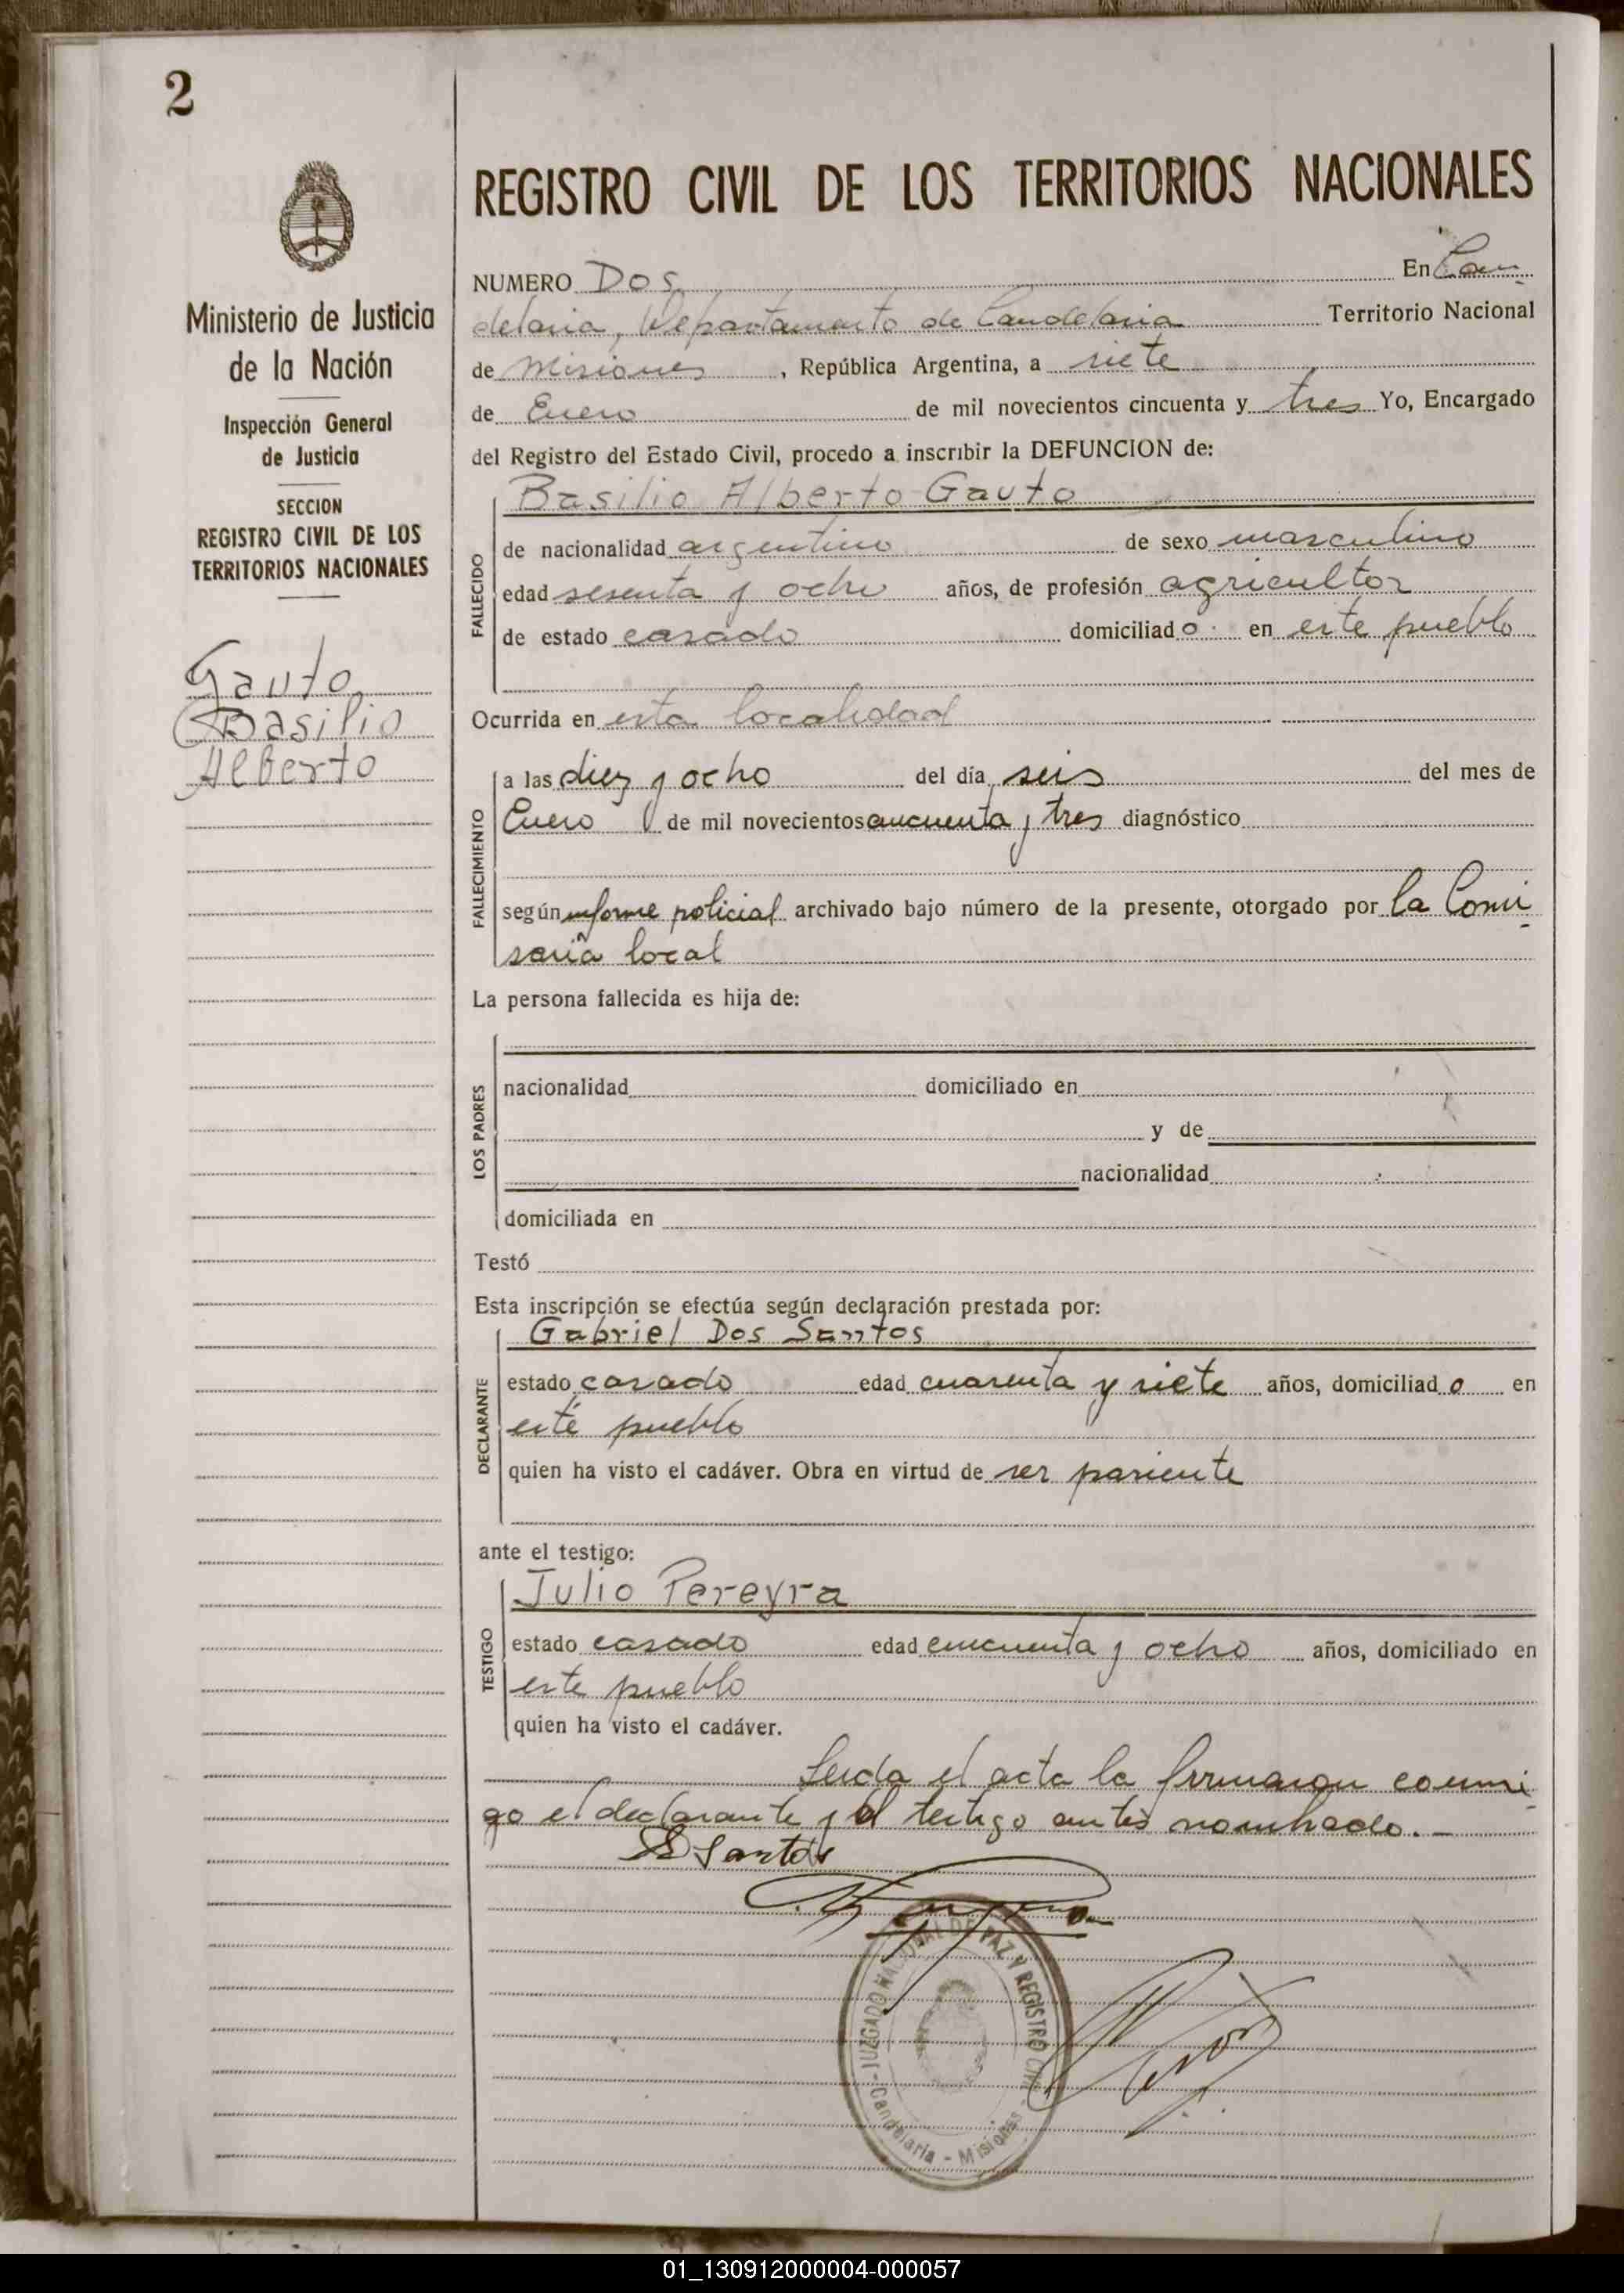 2
Ministerio de Justicia
de la Nación
Inspección General
de Justicia
SECCION
REGISTRO CIVIL DE LOS
TERRITORIOS NACIONALES
Gauto
Basilio
Alberto
REGISTRO CIVIL DE LOS TERRITORIOS NACIONALES
NUMERO Dos En Can-
delaria, Departamento de Candelaria Territorio Nacional
de Misiones, República Argentina, a siete
de Enero de mil novecientos cincuenta y tres Yo, Encargado
del Registro del Estado Civil, procedo a inscribir la DEFUNCION de:
Basilio Alberto Gauto
FALLECIDO
de nacionalidad argentino de sexo masculino
edad sesenta y ocho años, de profesión agricultor
de estado casado domiciliado en este pueblo
Ocurrida en esta localidad
FALLECIMIENTO
a las diez y ocho del día seis del mes de
Enero de mil novecientos cincuenta y tres diagnóstico
según informe policial archivado bajo número de la presente, otorgado por la Comi-
saría local
La persona fallecida es hija de:
LOS PADRES
nacionalidad domiciliado en
y de
nacionalidad
domiciliada en
Testó
Esta inscripción se efectúa según declaración prestada por:
Gabriel Dos Santos
DECLARANTE
estado casado edad cuarenta y siete años, domiciliado en
este pueblo
quien ha visto el cadáver. Obra en virtud de ser pariente
ante el testigo:
Julio Pereyra
TESTIGO
estado casado edad cincuenta y ocho años, domiciliado en
este pueblo
quien ha visto el cadáver.
Leida el acta la firmaron conmi-
go el declarante y el testigo antes nombrado.-
Santos
JUZGADO NACIONAL DE PAZ Y REGISTRO CIVIL
Candelaria - Misiones
01_130912000004-000057